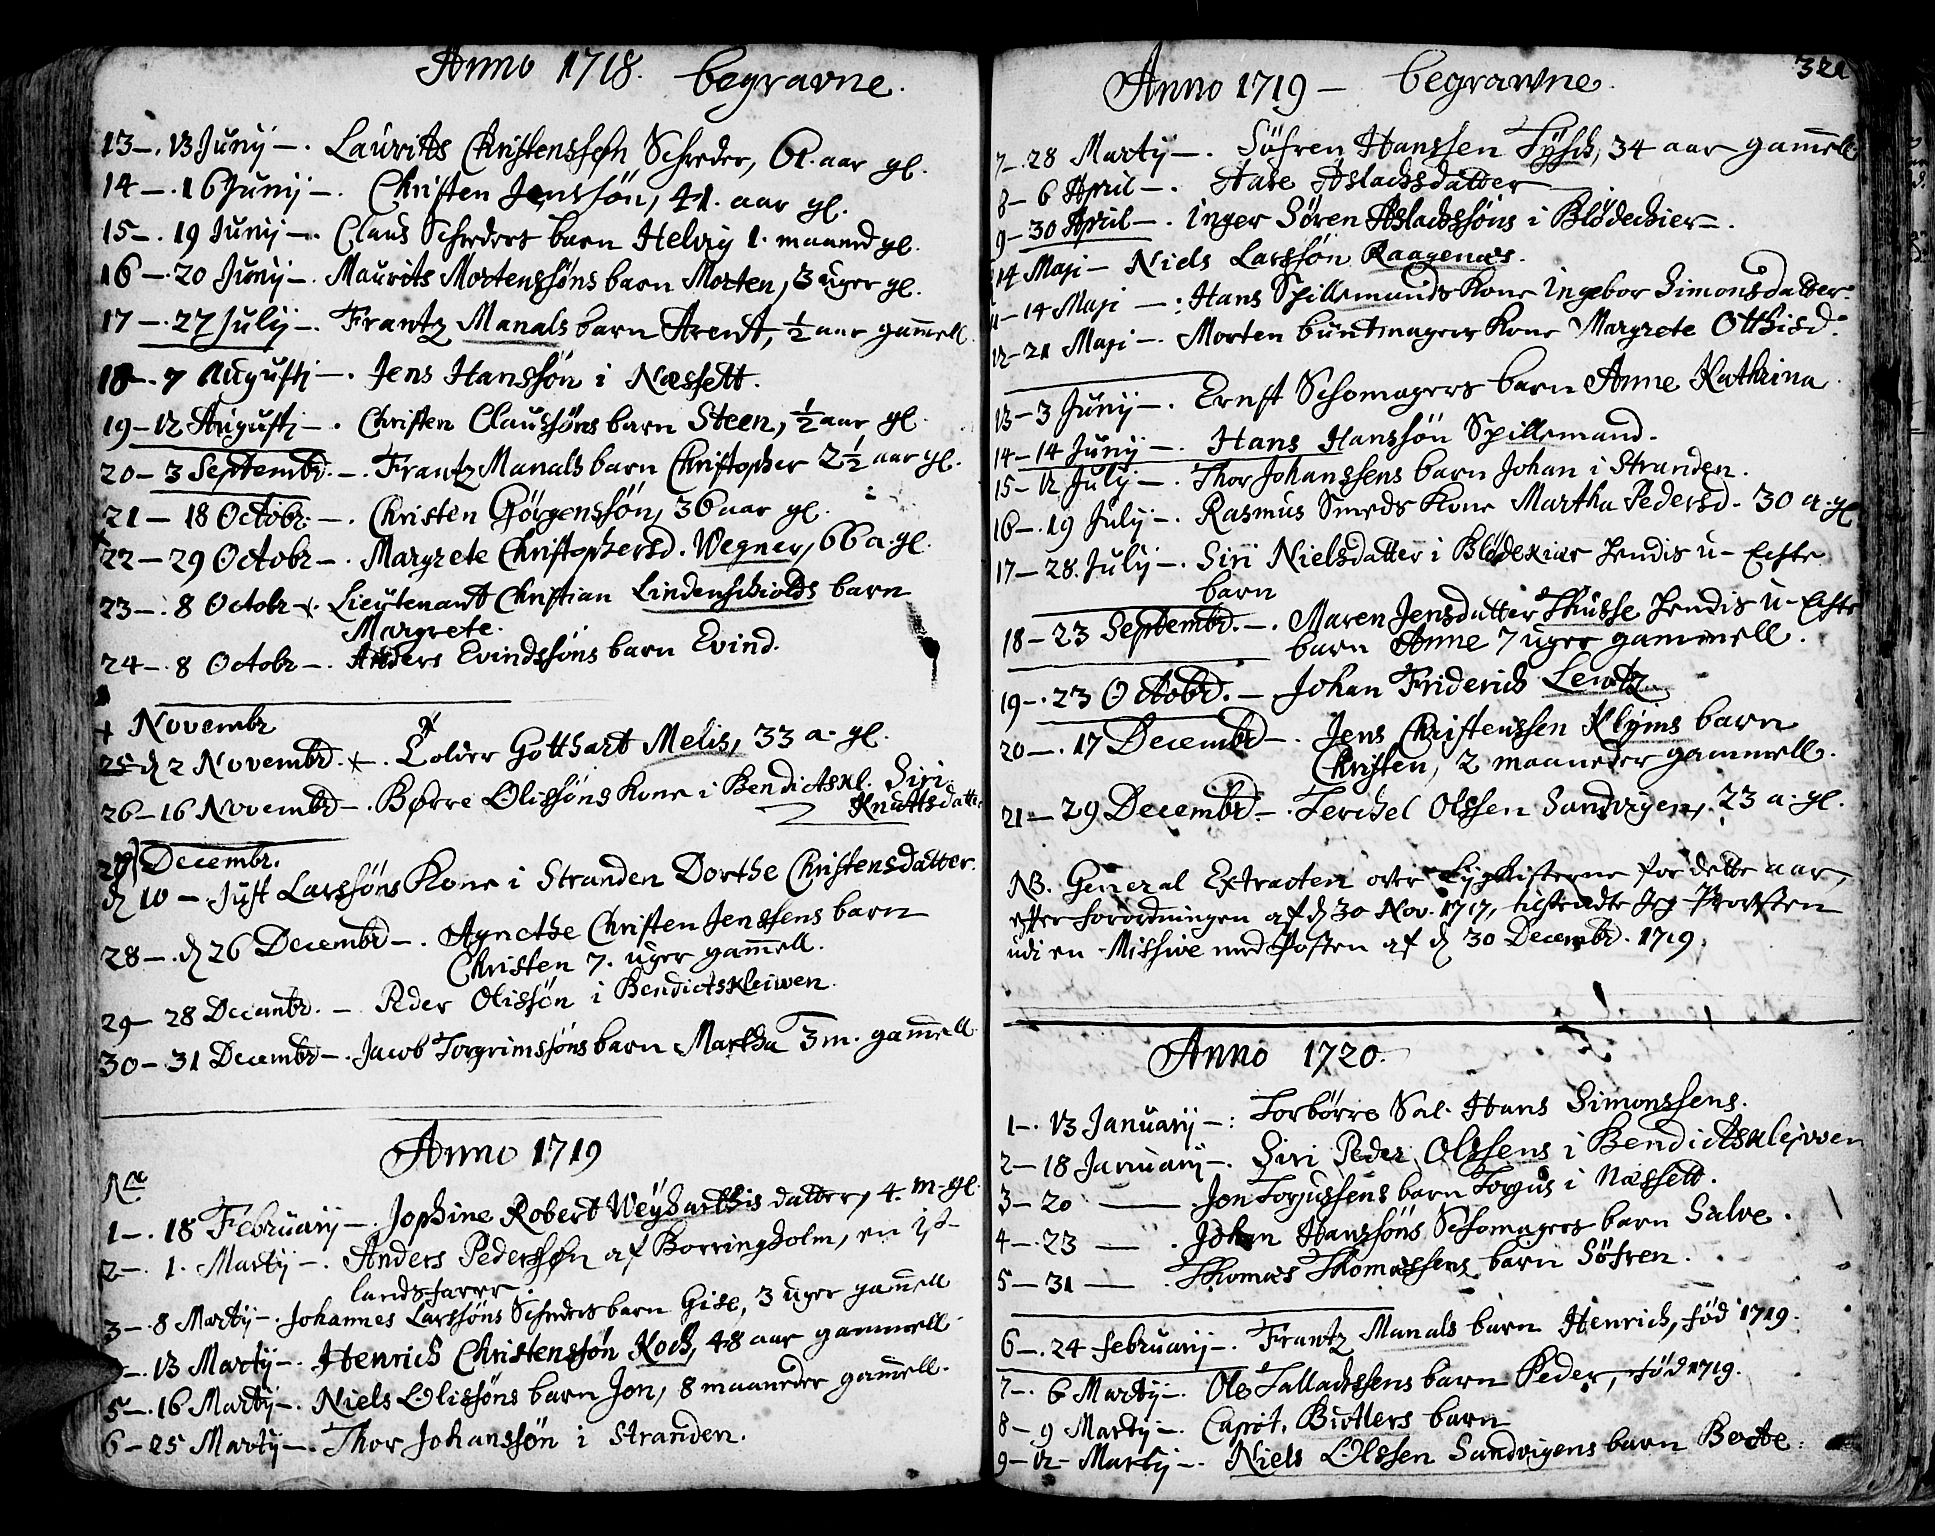 Anno 1718. begravne.
13 –. 13 Junij –. Laurits Christenssøn Schreder, 61. aar gl.
14 –. 16 Junij –. Christen Jenssøn, 41. aar gl.
15 –. 19 Junij –. Claus Schreders barn Helvig 1. maaned gl.
16 –. 20 Junij –. Maurits Mortenssøns barn Morten, 3 uger gl.
17 –. 27 Julij –. Frantz Manals barn Arent, ½ aar gam̄ell.
18 –. 7 Augusti –. Jens Hanssøn i Næssett.
19 – 12 Augusti –. Christen Claussøns barn Steen, ½ aar gl.
20 – 3 Septembr. –. Frantz Manals barn Christopher 2½ aar gl.
21 – 18 Octobr. –. Christen Gjörgenssøn, 36 aar gl.
22 – 29 Octobr –. Margrete Christophersd. Wegner, 66 a. gl.
23 –. 8 Octobr –. Lieutenant Christian Lindenschiolds barn
Margrete.
24 –. 8 Octobr –. Anders Evindssøns barn Evind.
+ Novembr
25 d 2 Novembr. –. Tolder Gotthart Melis, 33 a. gl.
26 – 16 Novembr –. Børre Olissøns Kone i Bendictskl. Siri
Knuttsdatter
27 Decembr.
d 10 – Just Larssøns Kone i Stranden Dorthe Christensdatter.
28 –. d 26 Decembr –. Agnethe Christen Jenssens barn
Christen 7. uger gam̄ell.
29 – 28 Decembr. – Peder Olissøn i Bendictskleiwen.
30 – 31 Decembr –. Jacob Torgrimssøns barn Martha 3 m. gam̄ell
Anno 1719
1 –. 18 Februarij –. Jophine Robert Weÿharthis datter, 4. m. gl.
2 –. 1. Martij –. Anders Pederssøn af Borringholm, en Is-
landsfarer.
3 –. 8 Martij –. Johannes Larssøns Schreders barn Gise, 3 uger gam̄ell
–. 13 Martij –. Henrich Christenssøn Koch, 48 aar gammell
5 –. 16 Martij –. Niels Olissøns barn Jon, 8 maaneder gam̄ell.
6 – 25 Martij –. Thor Johanssøn i Stranden.
Anno 1719 – begravne. 321
7 – 28 Martij –. Söfren Hanssen Tÿsch, 34 aar gam̄ell.
8 – 6 April –. Aase Aslachsdatter
9 – 30 April –. Inger Sören Aslachssøns i Blödechier –.
14 Maji – Niels Larssøn Raagenæs.
11 – 14 Maji –: Hans Spillemands Kone Ingebor Simonsdatter.
12 – 21 Maji –. Morten buntmagers Kone Margrete Ottisd.
13 – 3 Junij –. Ernst Schomagers barn Anne Kathrina.
14 – 14 Junij –. Hans Hanssøn Spillemand.
15 – 12 Julij –. Thor Johanssens barn Johan i Stranden.
16 –. 19 Julij –. Rasmus Smeds Kone Martha Pedersd. 30 a. gl
17 – 28. Julij –. Siri Nielsdatter i Blödekiær hendis u-Echte
barn
18 – 23 Septembr. –. Maren Jensdatter Skusse hendis u-Echte
barn Anne 7 uger gammell.
19 –. 23 Octobr. – Johan Friderich Lentz.
20 –. 17 Decembr –. Jens Christenssen Klÿms barn
Christen, 2 maaneder gammell.
21 – 29 Decembr –. Terchel Olssen Sandvigen, 23 a. gl.
NB. General Extracten over Lygkisterne for dette aar,
efter forordningen af d 30 Nov. 1717, tilstilte Jeg Provsten
udi en Missive med Posten af d 30 Decembr. 1719.
Anno 1720.
1 –. 13 Januarij –: Torbörre Sal. Hans Simonssens.
2 – 18 Januarij –. Siri Peder Olssens i Bendictsklejwen
3 – 20 —— Jon Torjussens barn Torgus i Næssett.
4 –. 23 — . Johan Hanssøns Schomagers barn Salve.
5 – 31 — . Thomas Thomassens barn Söfren.
6 –. 24 februarij –. Frantz Manals barn Henrich, föd 1719.
7 –. 6 Martij –. Ole Tallachssens barn Peder, föd 1719.
8 – 9 Martij –. Capit. Butlers barn
9 – 12 – Martij –. Niels Olssen Sandvigens barn Berte.